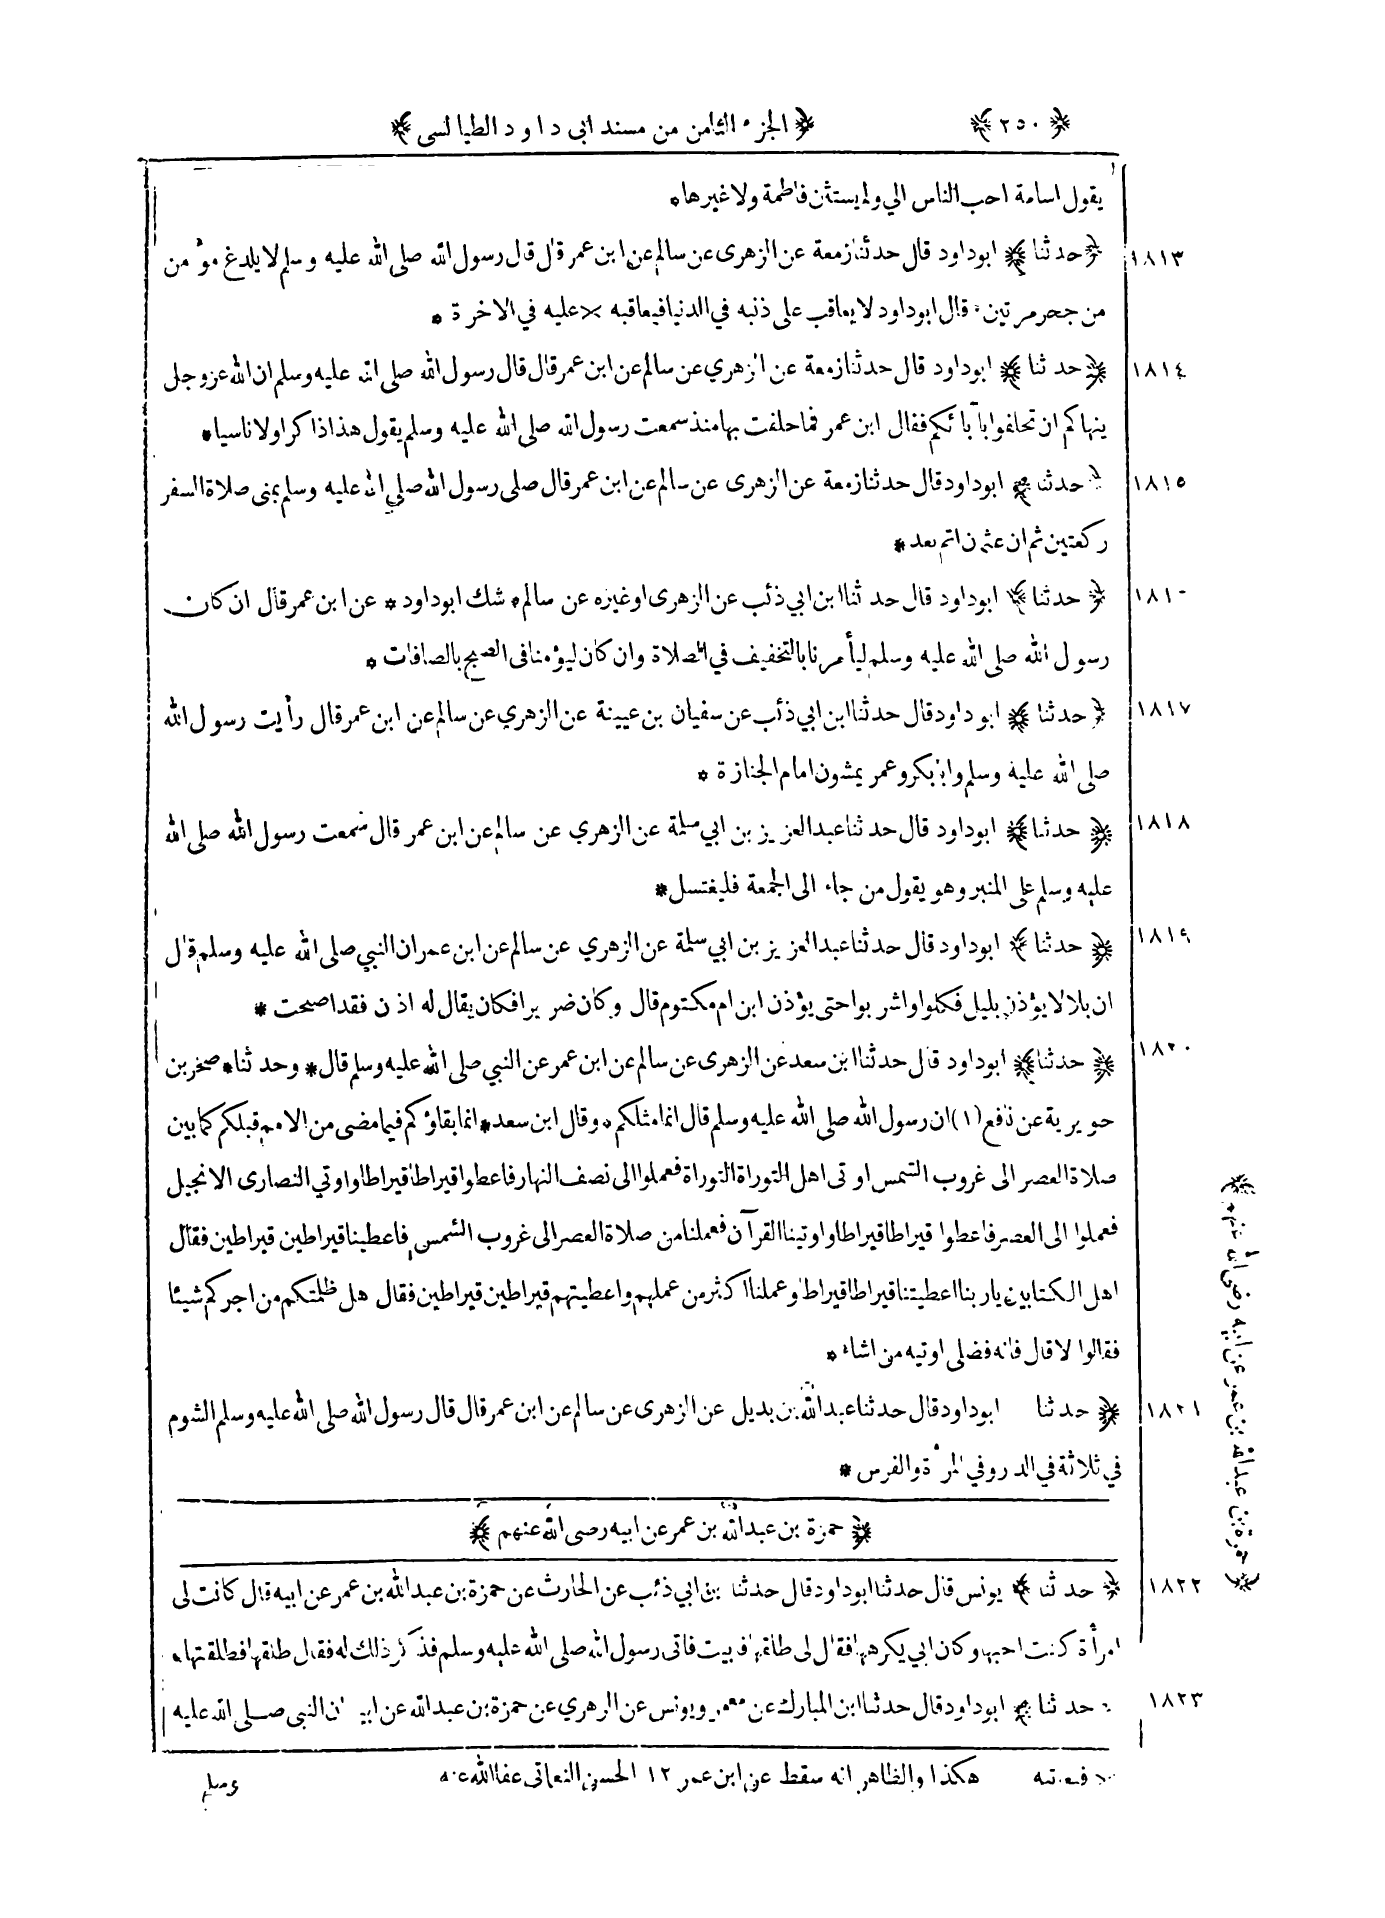 ﴿ ٢٥٠ ﴾ ﴿ الجزء الثامن من مسند ابى داود الطيالسى ﴾
يقول اسامة احب الناس الي ولم يستثن فاطمة ولا غيرها *
١٨١٣ ﴿ حدثنا ﴾ ابوداود قال حدثنا زمعة عن الزهرى عن سالم عن ابن عمر قال قال رسول الله صلى الله عليه وسلم لا يلدغ مؤمن
من جحر مرتين * قال ابوداود لا يعاقب على ذنبه في الدنيا فيعاقبه × عليه في الاخرة *
١٨١٤ ﴿ حدثنا ﴾ ابوداود قال حدثنا زمعة عن الزهري عن سالم عن ابن عمر قال قال رسول الله صلى الله عليه وسلم ان الله عزوجل
ينهاكم ان تحلفوا بآبائكم فقال ابن عمر فما حلفت بها منذ سمعت رسول الله صلى الله عليه وسلم يقول هذا ذاكرا ولا ناسيا *
١٨١٥ ﴿ حدثنا ﴾ ابوداود قال حدثنا زمعة عن الزهرى عن سالم عن ابن عمر قال صلى رسول الله صلى الله عليه وسلم بمنى صلاة السفر
ركعتين ثم ان عثمن اتم بعد *
١٨١٠ ﴿ حدثنا ﴾ ابوداود قال حدثنا ابن ابي ذئب عن الزهرى او غيره عن سالم * شك ابوداود * عن ابن عمر قال ان كان
رسول الله صلى الله عليه وسلم ليأمرنا بالتخفيف في الصلاة وان كان ليؤمنا فى الصبح بالصافات *
١٨١٧ ﴿ حدثنا ﴾ ابوداود قال حدثنا ابن ابي ذئب عن سفيان بن عيينة عن الزهري عن سالم عن ابن عمر قال رأيت رسول الله
صلى الله عليه وسلم وابابكر وعمر يمشون امام الجنازة *
١٨١٨ ﴿ حدثنا ﴾ ابوداود قال حدثنا عبدالعزيز بن ابي سلمة عن الزهري عن سالم عن ابن عمر قال سمعت رسول الله صلى الله
عليه وسلم على المنبر وهو يقول من جاء الى الجمعة فليغتسل *
١٨١٩ ﴿ حدثنا ﴾ ابوداود قال حدثنا عبدالعزيز بن ابي سلمة عن الزهري عن سالم عن ابن عمر ان النبي صلى الله عليه وسلم قال
ان بلالا يؤذن بليل فكلوا واشربوا حتى يؤذن ابن ام مكتوم قال وكان ضريرا فكان يقال له اذن فقد اصبحت *
١٨٢٠ ﴿ حدثنا ﴾ ابوداود قال حدثنا ابن سعد عن الزهرى عن سالم عن ابن عمر عن النبي صلى الله عليه وسلم قال * وحدثنا * صخر بن
جويرية عن نافع (١) ان رسول الله صلى الله عليه وسلم قال انما مثلكم * وقال ابن سعد * انما بقاؤكم فيما مضى من الامم قبلكم كما بين
صلاة العصر الى غروب الشمس اوتى اهل التوراة التوراة فعملوا الى نصف النهار فاعطوا قيراطا قيراطا واوتي النصارى الانجيل
فعملوا الى العصر فاعطوا قيراطا قيراطا واوتينا القرآن فعملنا من صلاة العصر الى غروب الشمس فاعطينا قيراطين قيراطين فقال
اهل الكتابين يا ربنا اعطيتنا قيراطا قيراطا وعملنا اكثر من عملهم واعطيتهم قيراطين قيراطين فقال هل ظلمتكم من اجركم شيئا
فقالوا لا قال فانه فضلى اوتيه من اشاء *
١٨٢١ ﴿ حدثنا ابوداود قال حدثنا عبدالله بن بديل عن الزهرى عن سالم عن ابن عمر قال قال رسول الله صلى الله عليه وسلم الشوم
في ثلاثة في الدار وفي المرأة والفرس *
﴿ حمزة بن عبدالله بن عمر عن ابيه رضى الله عنهم ﴾
﴿ حمزة بن عبدالله بن عمر عن ابيه رضى الله عنهم ﴾
١٨٢٢ ﴿ حدثنا ﴾ يونس قال حدثنا ابوداود قال حدثنا ابن ابي ذئب عن الحارث عن حمزة بن عبدالله بن عمر عن ابيه قال كانت لى
امرأة كنت احبها وكان ابي يكرهها فقال لى طلقها فابيت فاتى رسول الله صلى الله عليه وسلم فذكر ذلك له فقال طلقها فطلقتها *
١٨٢٣ ﴿ حدثنا ﴾ ابوداود قال حدثنا ابن المبارك عن معمر ويونس عن الزهري عن حمزة بن عبدالله عن ابيه ان النبى صلى الله عليه
هكذا والظاهر انه سقط عن ابن عمر ١٢ الحسن النعمانى عفا الله عنه
وسلم